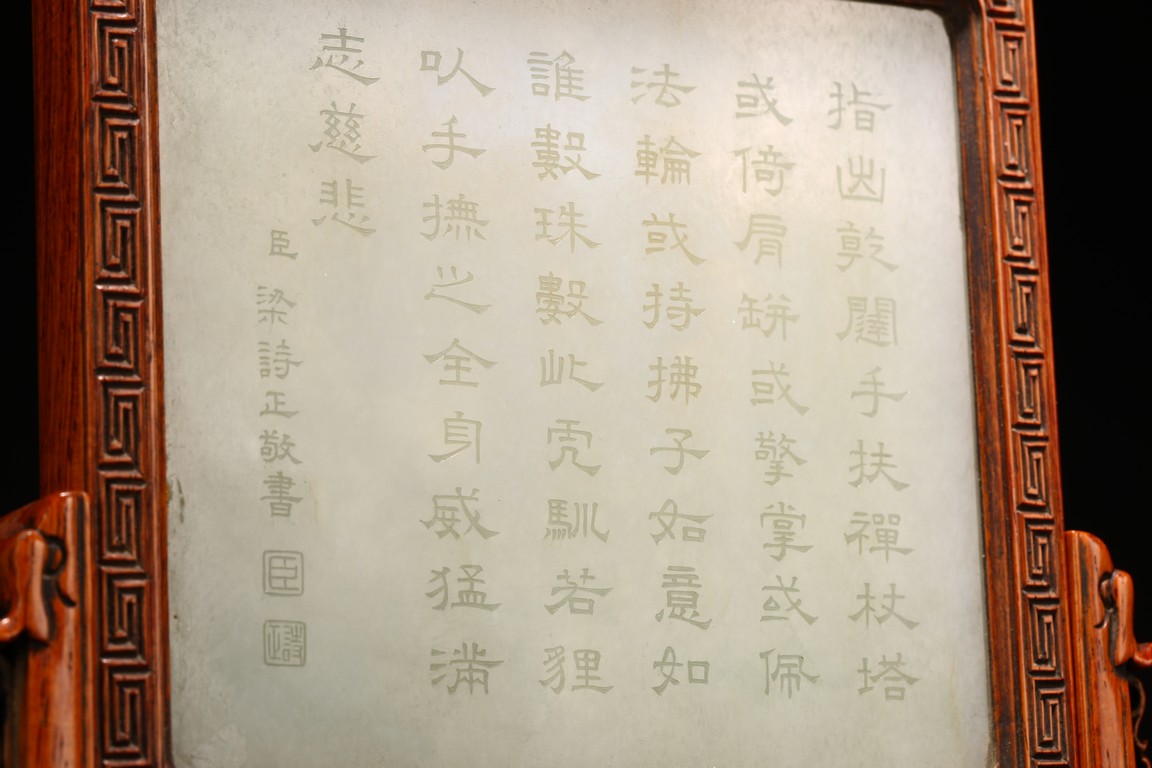 指乾闥手扶禪杖塔
或倚肩缾或擎掌或佩
法輪或持拂子如意如
誰數珠數此虎馴若貍
㕥手撫之全身威猛滿
志慈悲
臣梁詩正敬書
臣
詩正